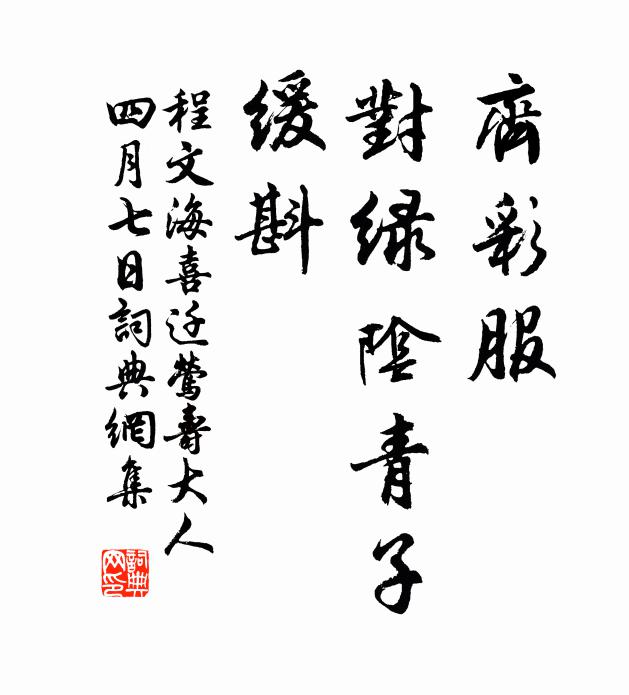 齊彩服
對緑陰青子
緩斟
程文海喜迁鶯壽大人
四月七日詞典網集
詞典网印